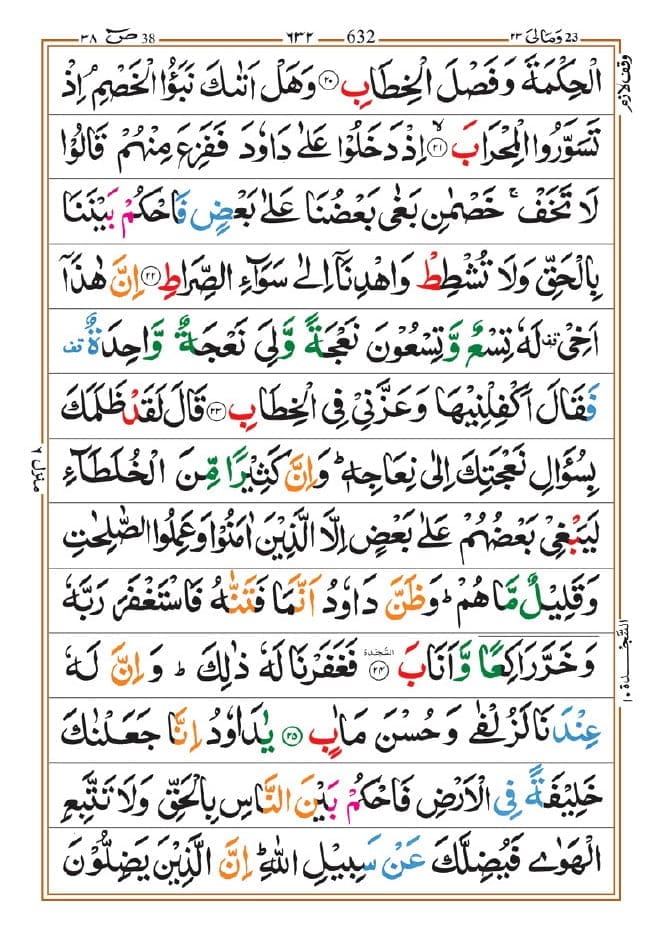 ٣٨ صٓ 38 ٦٣٢ 632 وَمَالِيَ ٢٣ 23
وقف لازم
الْحِكْمَةَ وَفَصْلَ الْخِطَابِ ﴿٢٠﴾ وَهَلْ اَتٰىكَ نَبَؤُا الْخَصْمِ ۘ اِذْ
تَسَوَّرُوا الْمِحْرَابَ ﴿٢١﴾ۙ اِذْ دَخَلُوْا عَلٰى دَاوٗدَ فَفَزِعَ مِنْهُمْ قَالُوْا
لَا تَخَفْ ۚ خَصْمٰنِ بَغٰى بَعْضُنَا عَلٰى بَعْضٍ فَاحْكُمْ بَيْنَنَا
بِالْحَقِّ وَلَا تُشْطِطْ وَاهْدِنَاۤ اِلٰى سَوَآءِ الصِّرَاطِ ﴿٢٢﴾ اِنَّ هٰذَاۤ
اَخِيْ قف لَهٗ تِسْعٌ وَّتِسْعُوْنَ نَعْجَةً وَّلِيَ نَعْجَةٌ وَّاحِدَةٌ قف
فَقَالَ اَكْفِلْنِيْهَا وَعَزَّنِيْ فِي الْخِطَابِ ﴿٢٣﴾ قَالَ لَقَدْ ظَلَمَكَ
بِسُؤَالِ نَعْجَتِكَ اِلٰى نِعَاجِهٖ ؕ وَاِنَّ كَثِيْرًا مِّنَ الْخُلَطَآءِ
منزل ٦
لَيَبْغِيْ بَعْضُهُمْ عَلٰى بَعْضٍ اِلَّا الَّذِيْنَ اٰمَنُوْا وَعَمِلُوا الصّٰلِحٰتِ
وَقَلِيْلٌ مَّا هُمْ ؕ وَظَنَّ دَاوٗدُ اَنَّمَا فَتَنّٰهُ فَاسْتَغْفَرَ رَبَّهٗ
وَخَرَّ رَاكِعًا وَّاَنَابَ السَّجْدَة ﴿٢٤﴾ فَغَفَرْنَا لَهٗ ذٰلِكَ ؕ وَاِنَّ لَهٗ
السَّجْدَة ١٠
عِنْدَنَا لَزُلْفٰى وَحُسْنَ مَاٰبٍ ﴿٢٥﴾ يٰدَاوٗدُ اِنَّا جَعَلْنٰكَ
خَلِيْفَةً فِي الْاَرْضِ فَاحْكُمْ بَيْنَ النَّاسِ بِالْحَقِّ وَلَا تَتَّبِعِ
الْهَوٰى فَيُضِلَّكَ عَنْ سَبِيْلِ اللّٰهِ ؕ اِنَّ الَّذِيْنَ يَضِلُّوْنَ